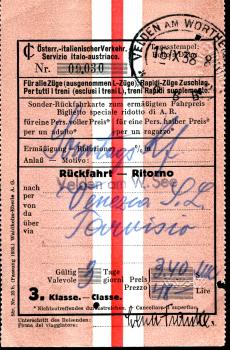 Österr.-italienischer Verkehr.
Servizio italo-austriaco.
Tagesstempel:
VELDEN AM WÖRTHE
Nr. 09,030
Für alle Züge (ausgenommen L-Züge). Rapidi-Züge Zuschlag.
Per tutti i treni (esclusi i treni L), treni Rapidi supplemento
Sonder-Rückfahrkarte zum ermäßigten Fahrpreis
Biglietto speciale ridotto di A. R.
für eine Pers. voller Preis* für eine Pers. halber Preis*
per un adulto* per un ragazzo*
Ermäßigung – Riduzione
Anlaß Motivo:
Rückfahrt — Ritorno
nach
per Velden am W. See
von Venezia S. L.
da
über Tarvisio
via
Gültig 3 Tage
Valevole giorni
Preis
Prezzo Lire
3. Klasse.—Classe.
* Nichtzutreffendes durchstreichen. * Cancellare il superfluo.
Unterschrift des Reisenden:
Firma del viaggiatore: